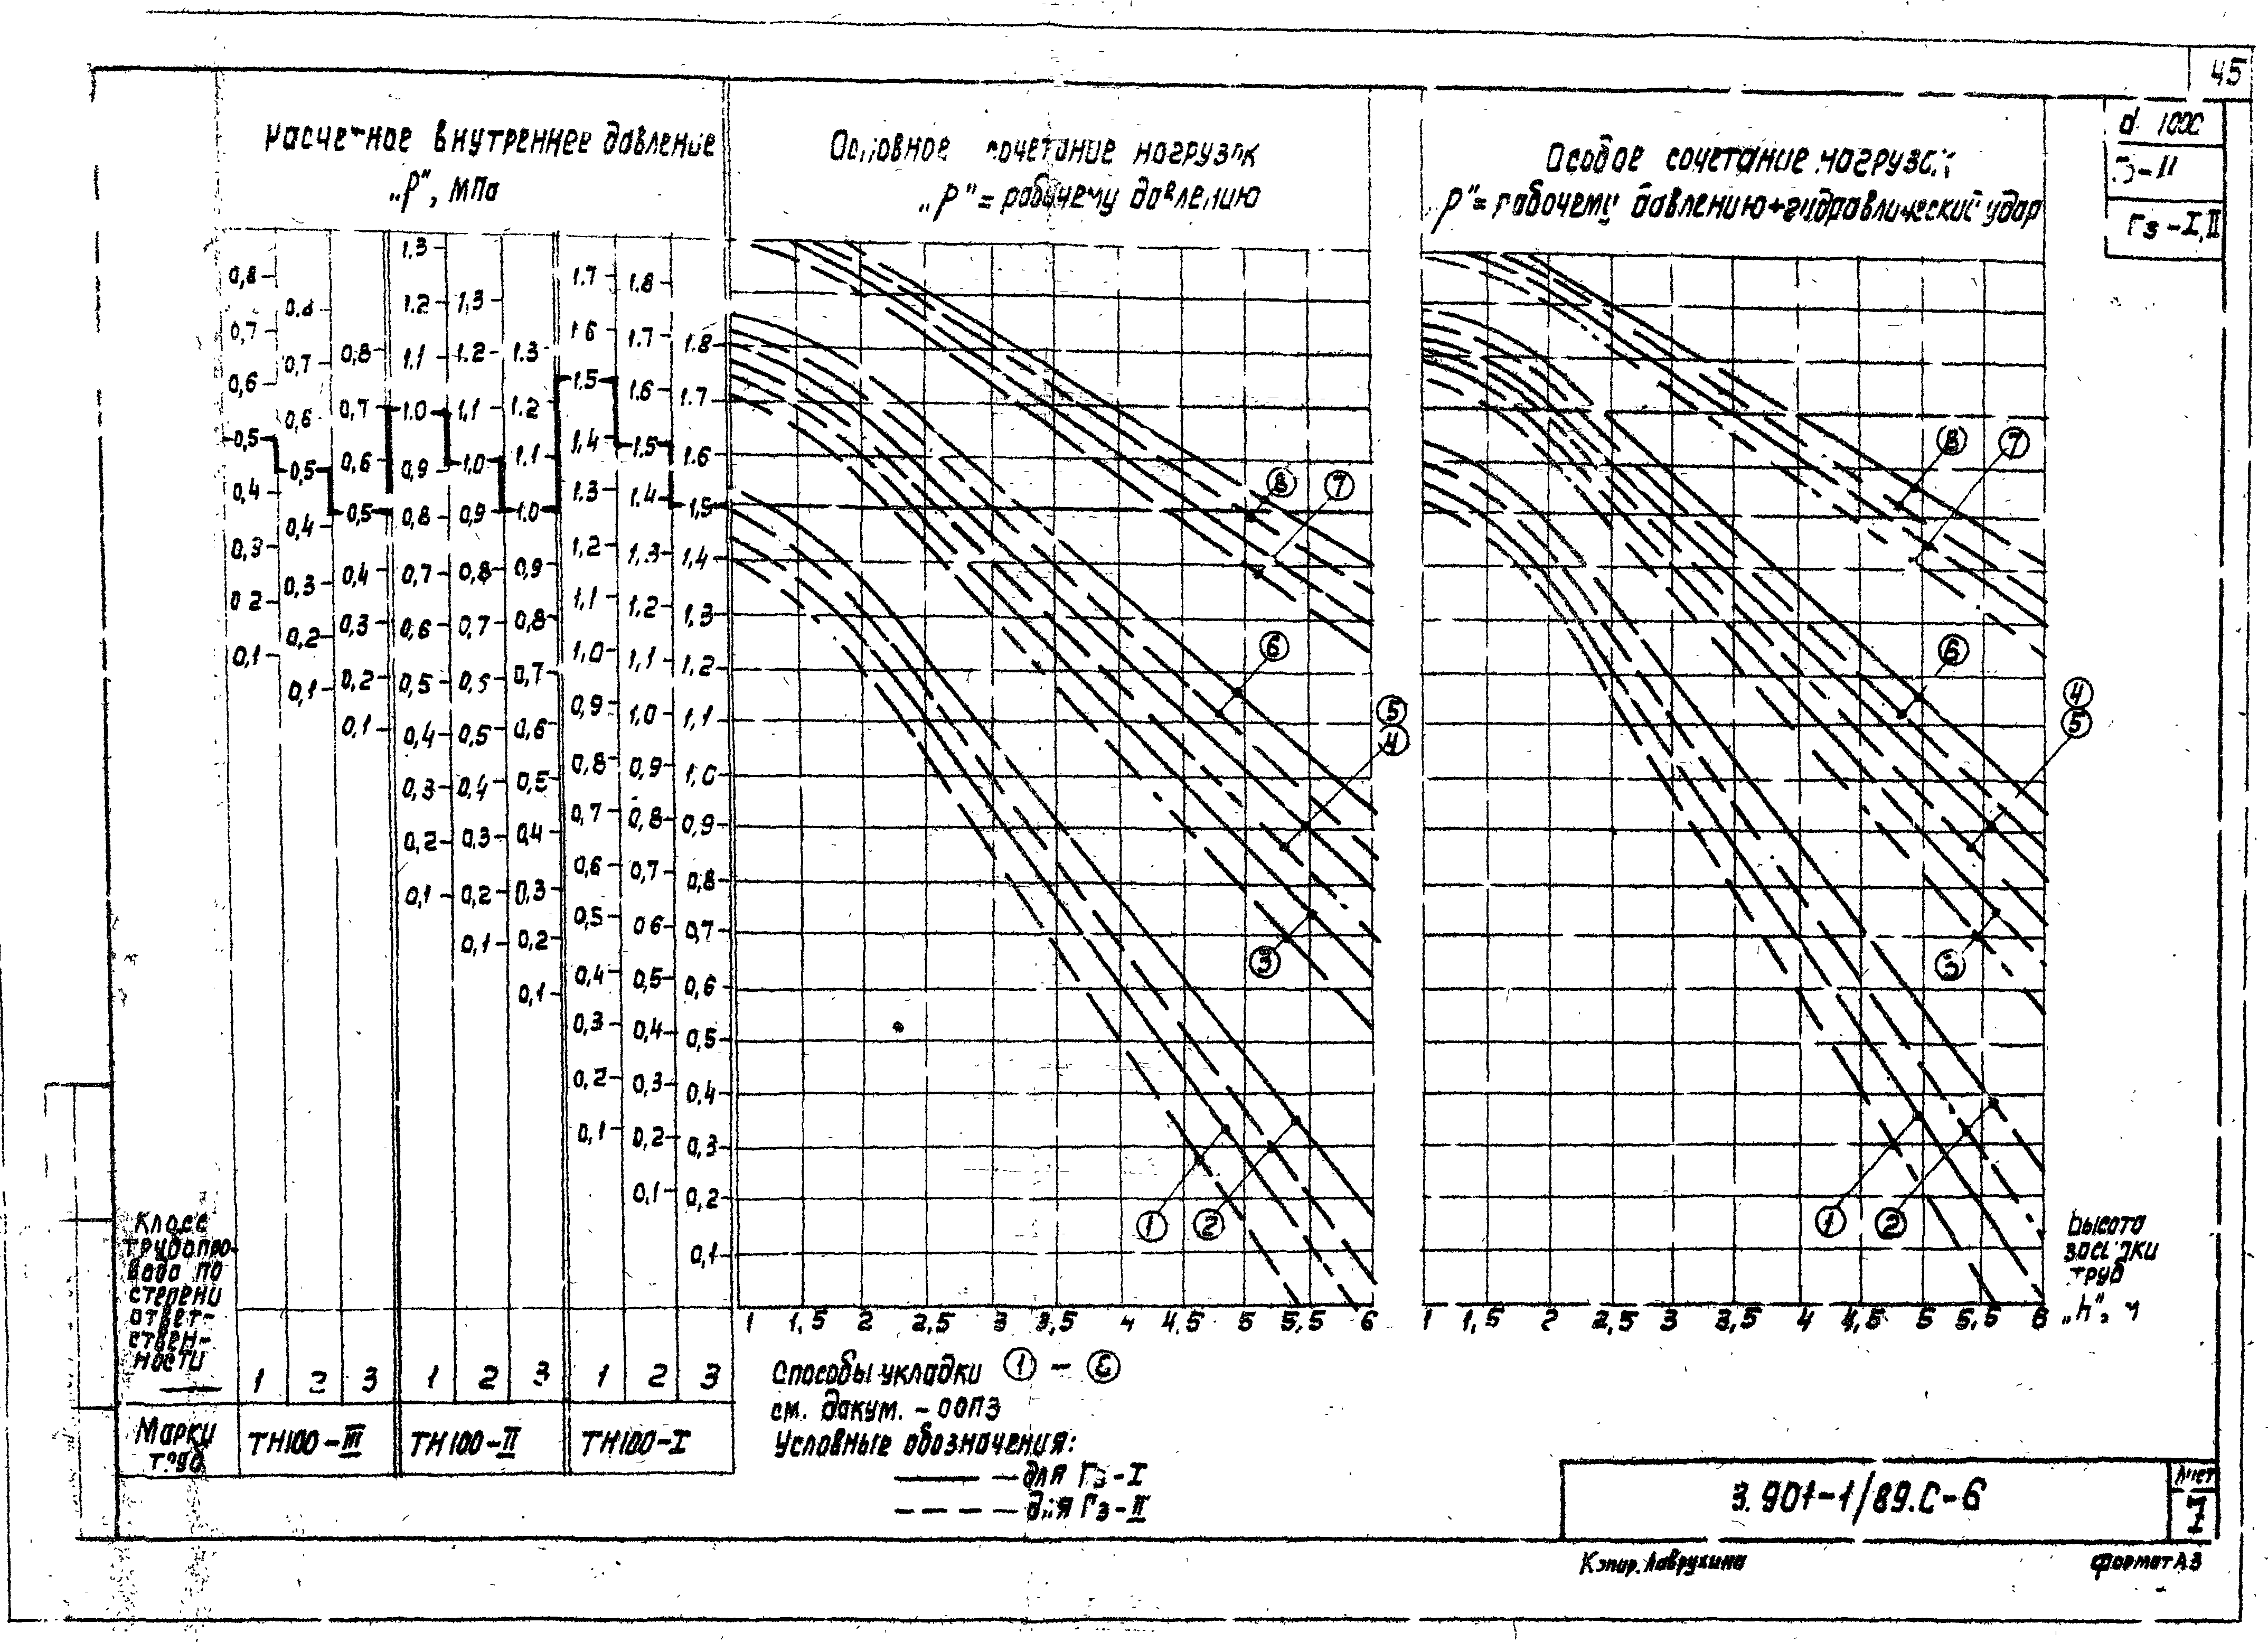 45
d 1000
Гз-I,II
Расчетное внутреннее давление
„Р", МПа
Основное сочетание нагрузок
„Р"= рабочему давлению
Особое сочетание нагрузок
Р"= рабочему давлению+гидравлический удар
0,8 0,7 0,6 0,5 0,4 0,3 0,2 0,1
0,8 0,7 0,6 0,5 0,4 0,3 0,2 0,1
0,8 0,7 0,6 0,5 0,4 0,3 0,2 0,1
1.3 1.2 1.1 1.0 0,9 0,8 0,7 0,6 0,5 0,4 0,3 0,2 0,1
1,3 1.2 1,1 1,0 0,9 0,8 0,7 0,6 0,5 0,4 0,3 0,2 0,1
1.3 1.2 1,1 1.0 0,9 0,8 0,7 0,6 0,5 0,4 0,3 0,2 0,1
1.7 1.6 1.5 1,4 1,3 1,2 1,1 1,0 0,9 0,8 0,7 0,6 0,5 0,4 0,3 0,2 0,1
1.8 1.7 1.6 1.5 1.4 1.3 1.2 1,1 1,0 0,9 0,8 0,7 0,6 0,5 0,4 0,3 0,2 0,1
1.8 1.7 1.6 1,5 1,4 1,3 1,2 1,1 1,0 0,9 0,8 0,7 0,6 0,5 0,4 0,3 0,2 0,1
8 7
6
5
4
3
1 2
8 7
6
4
5
3
1 2
1 1,5 2 2,5 3 3,5 4 4,5 5 5,5 6
1 1,5 2 2,5 3 3,5 4 4,5 5 5,5 6
Высота
засыпки
труб
„h",
Класс
трубопро-
вода по
степени
ответ-
ствен-
ности
1 2 3 1 2 3 1 2 3
Марки
труб
ТН100-III ТН100-II ТН100-I
Способы укладки 1 -
см. докум. -00ПЗ
Условные обозначения:
— для Гз-I
— для Гз-II
3.901-1/89.С-6
Лист
7
Копир. Лаврухина
Формат А3